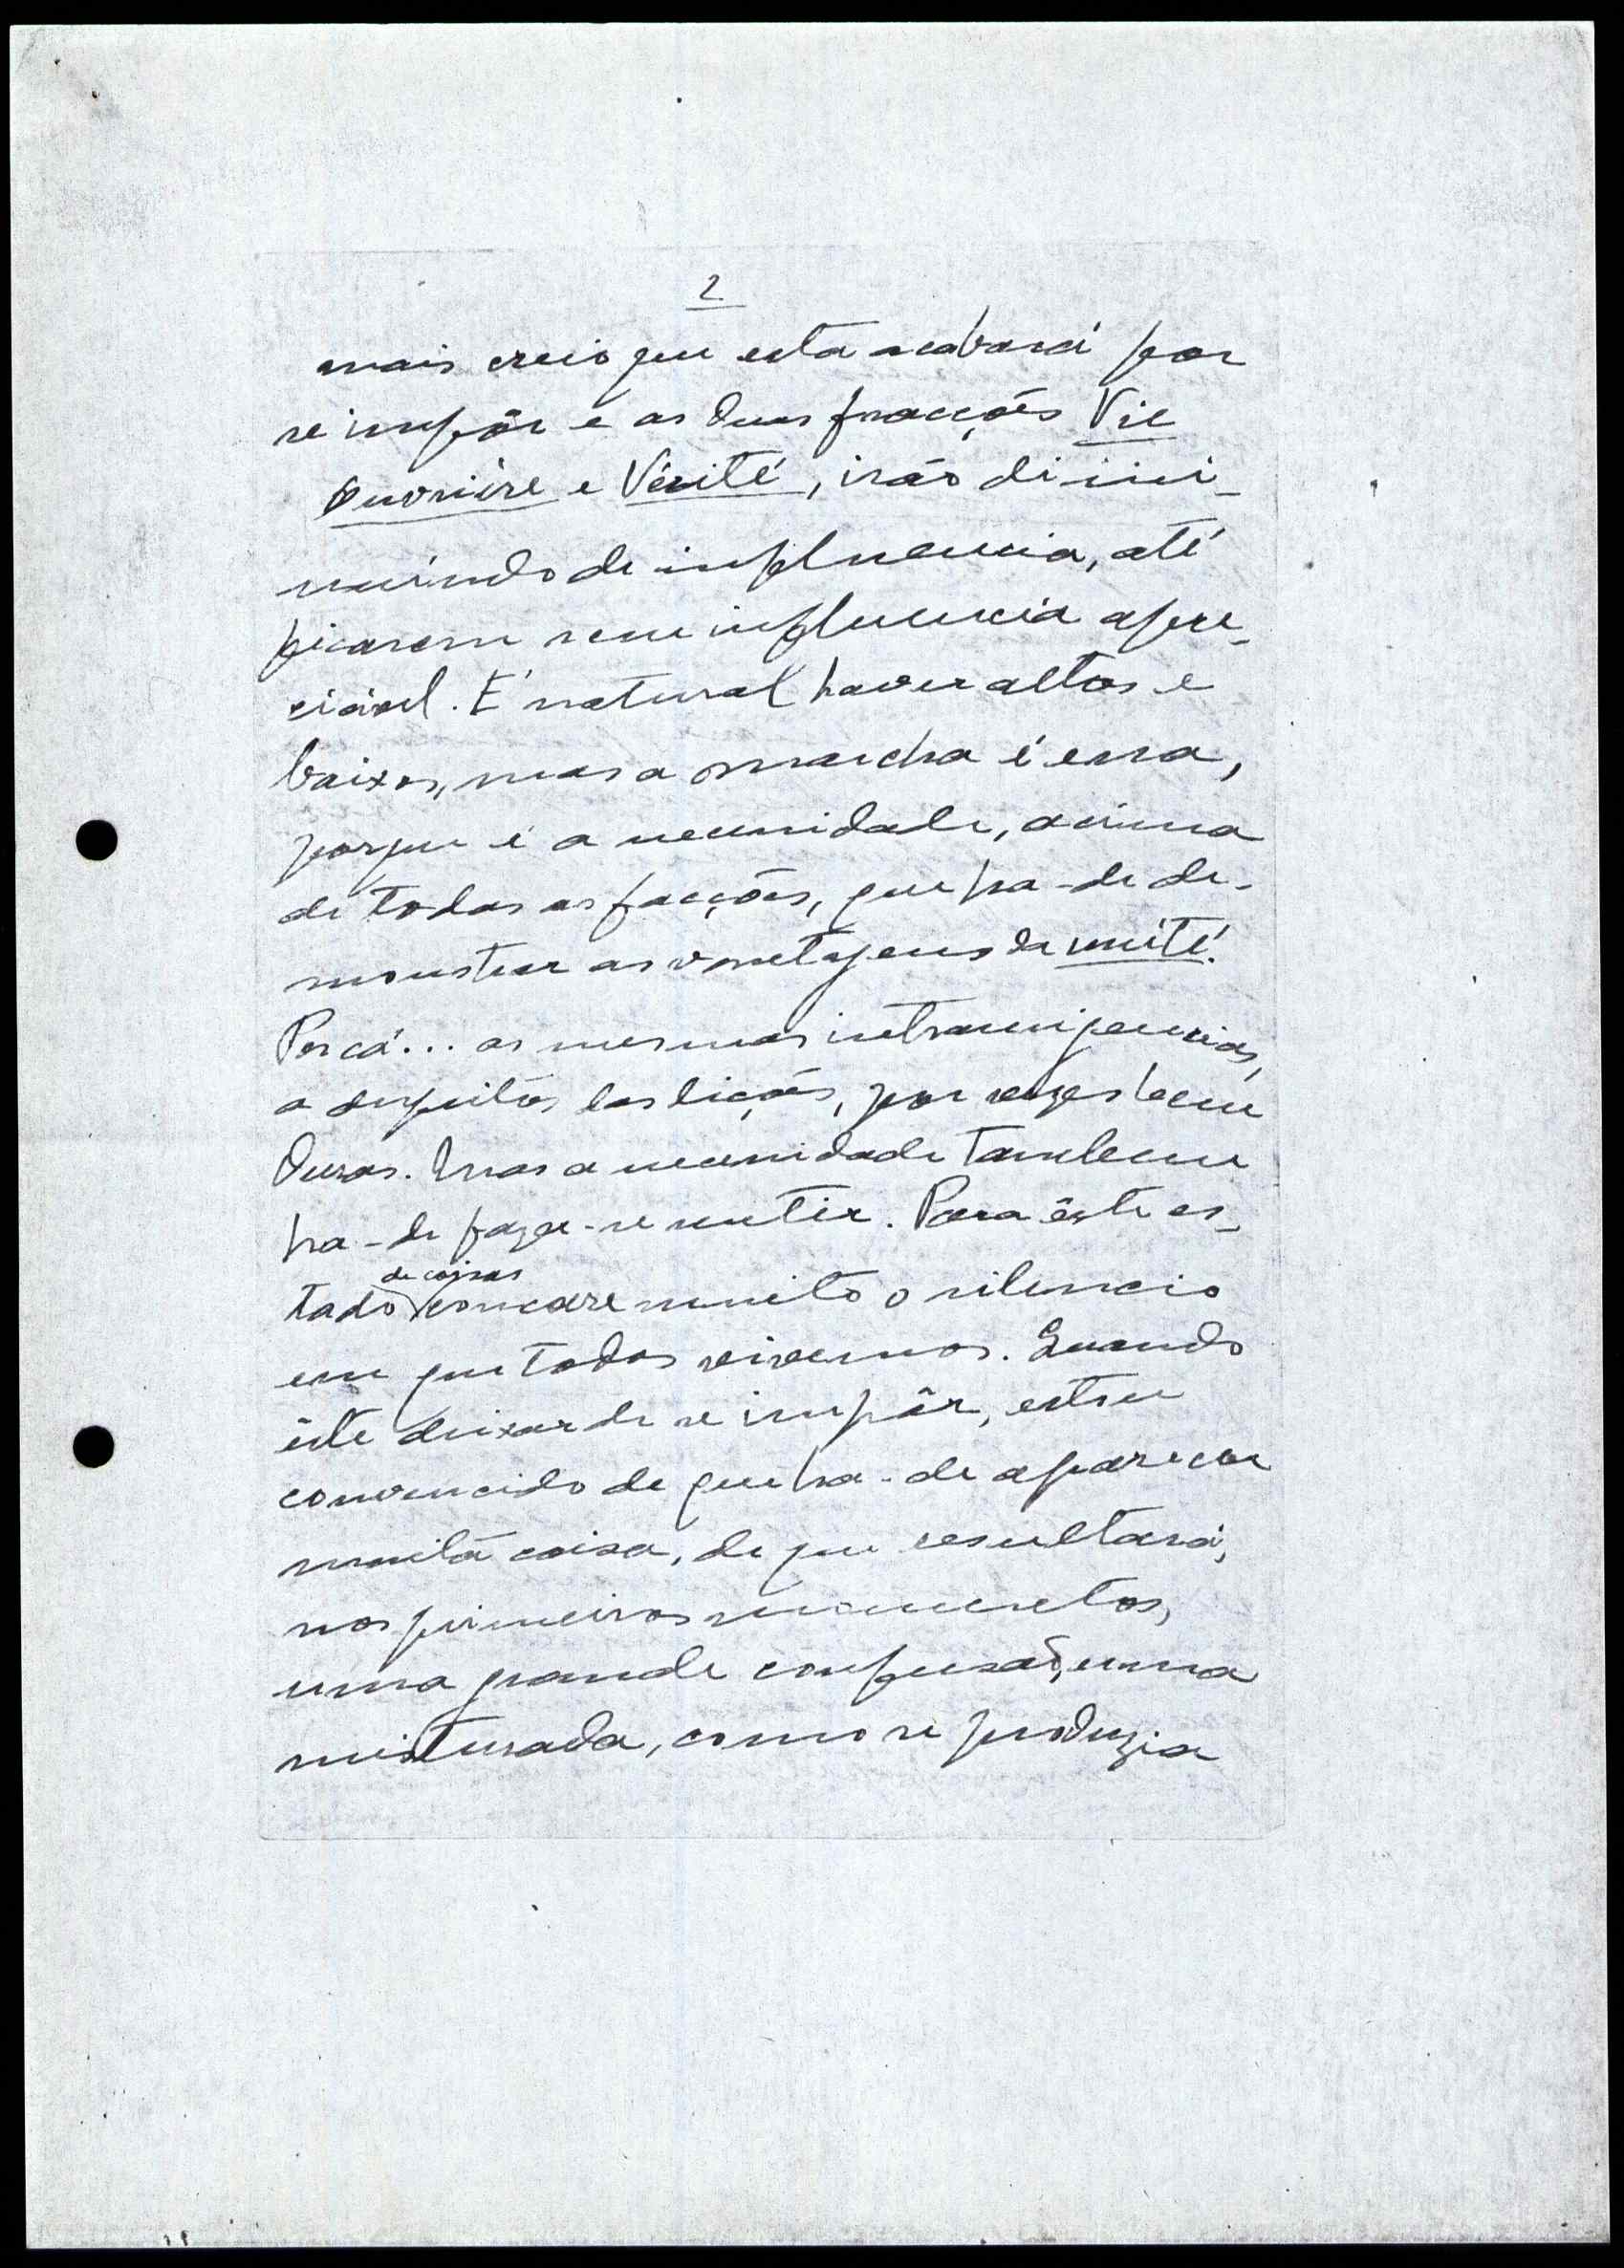 2
mais creio que esta acabará por
se impôr e as duas fracções Vie
Ouvrière e Vérité, irão dimi-
nuindo de influencia, até
ficarem sem influencia apre-
ciável. É natural haver altos e
baixos, mas a marcha é essa,
porque é a necessidade, acima
de todas as facções, que ha-de de-
monstrar as vantagens da unité.
Por cá... as mesmas intransigencias,
a despeito das lições, por vezes bem
duras. Mas a necessidade tambem
ha-de fazer-se sentir. Para êste es-
de coisas
tado concorre muito o silencio
em que todos vivemos. Quando
êste deixar de se impôr, estou
convencido de que ha-de aparecer
muita coisa, de que resultará,
nos primeiros momentos,
uma grande confusão, uma
misturada, como se produzia